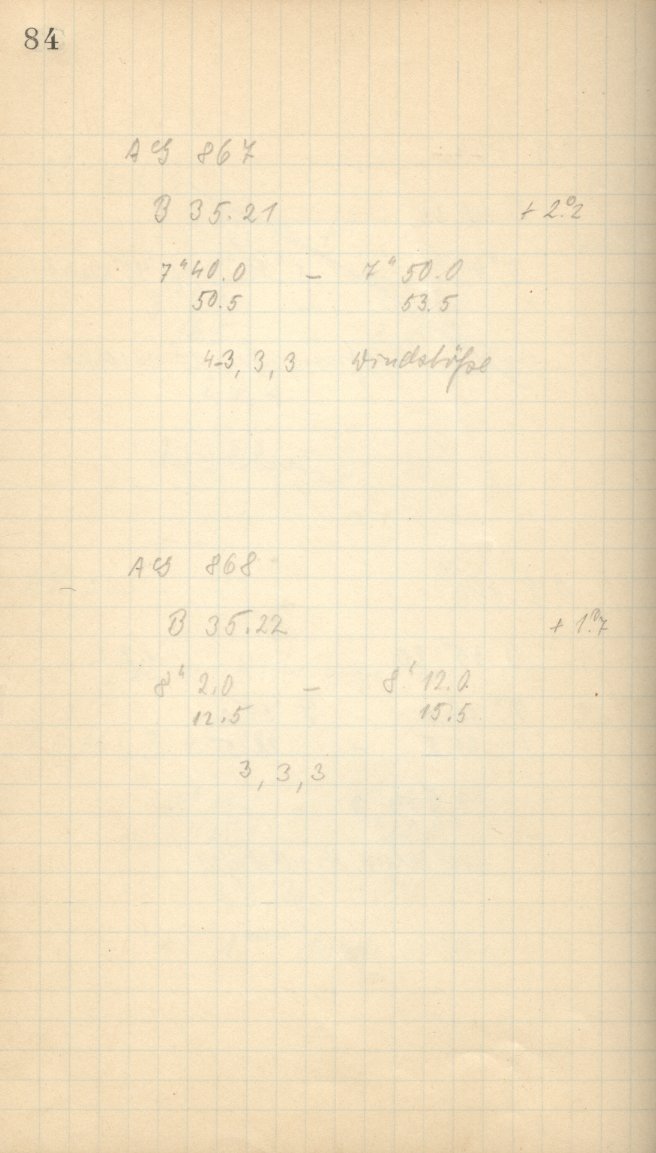 84
AG 867
B 35.21 + 2.°2
7ʰ 40.0 – 7ʰ 50.0
50.5 53.5
4-3, 3, 3 Windstöße
AG 868
B 35.22 + 1.°7
8ʰ 2.0 – 8ʰ 12.0
12.5 15.5
3, 3, 3